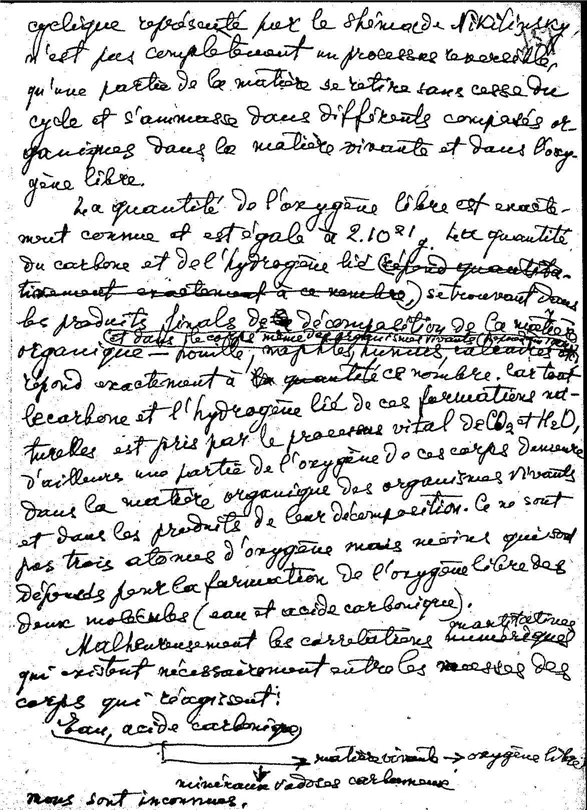 cyclique représenté par le shêma de Nikitinsky,
n'est pas complètement un processus reversible,
qu'une partie de la matière se retire sans cesse du
cycle et s'ammasse dans différents composés or-
ganiques dans la matière vivante et dans l'oxy-
gène libre.
La quantité de l'oxygène libre est exacte-
ment connue et est égale à 2.10²¹ g. La quantité
du carbone et de l'hydrogène lié (répond quantita-
tivement exactement à ce nombre,) se trouvant dans
les produits finals de décomposition de la matière
et dans le corps même des organismes vivants
organique — houille, naphtes, humus, calcaires etc.
répond exactement à la quantité ce nombre. Car tout
le carbone et l'hydrogène lié de ces formations na-
turelles est pris par le processus vital de CO2 et H2O,
d'ailleurs une partie de l'oxygène de ces corps demeure
dans la matière organique des organismes vivants
et dans les produits de leur décomposition. Ce ne sont
pas trois atomes d'oxygène mais moins qui sont
dépensés pour la formation de l'oxygène libre des
deux molécules (eau et acide carbonique).
quantitatives
Malheureusement les correlations numériques
qui existent nécessairement entre les masses des
corps qui réagissent:
Eau, acide carbonique
→ matière vivante → oxygène libre
minéraux vadoses carbonneux
nous sont inconnues.